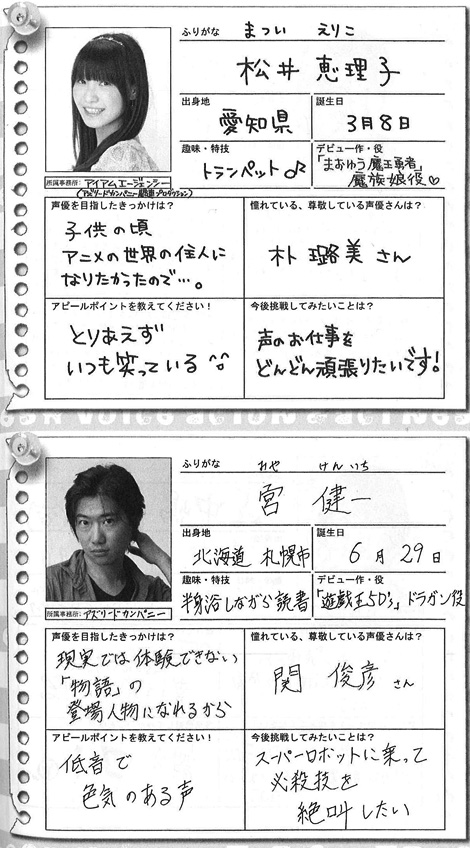 ふりがな まつい えりこ
松井 恵理子
出身地
愛知県
誕生日
3月8日
趣味・特技
トランペット♪
デビュー作・役
「まおゆう魔王勇者」
魔族娘役♡
所属事務所:アイアムエージェンシー
声優を目指したきっかけは?
子供の頃
アニメの世界の住人に
なりたかったので…。
憧れている、尊敬している声優さんは?
朴璐美さん
アピールポイントを教えてください!
とりあえず
いつも笑っている^^
今後挑戦してみたいことは?
声のお仕事を
どんどん頑張りたいです!
ふりがな みや けんいち
宮 健一
出身地
北海道 札幌市
誕生日
6月29日
趣味・特技
半身浴しながら読書
デビュー作・役
「遊戯王5D's」ドラガン役
所属事務所:アズリードカンパニー
声優を目指したきっかけは?
現実では体験できない
「物語」の
登場人物になれるから
憧れている、尊敬している声優さんは?
関 俊彦 さん
アピールポイントを教えてください!
低音で
色気のある声
今後挑戦してみたいことは?
スーパーロボットに乗って
必殺技を
絶叫したい